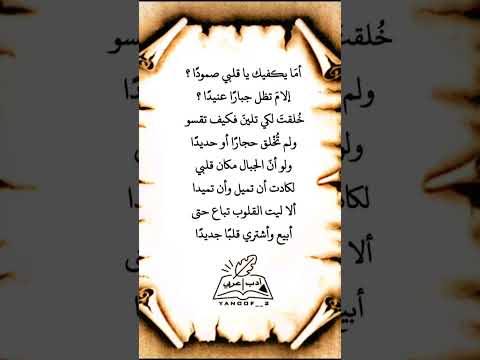 أمَا يكفيك يا قلبي صمودًا ؟
إلامَ تظل جبارًا عنيدًا ؟
خُلقتَ لكي تلينَ فكيف تقسو
ولم تُخلق حجارًا أو حديدًا
ولو أنّ الجبال مكان قلبي
لكادت أن تميل وأن تميدا
ألا ليت القلوب تباع حتى
أبيع وأشتري قلبًا جديدًا
أدب عربي
YANOOF__2